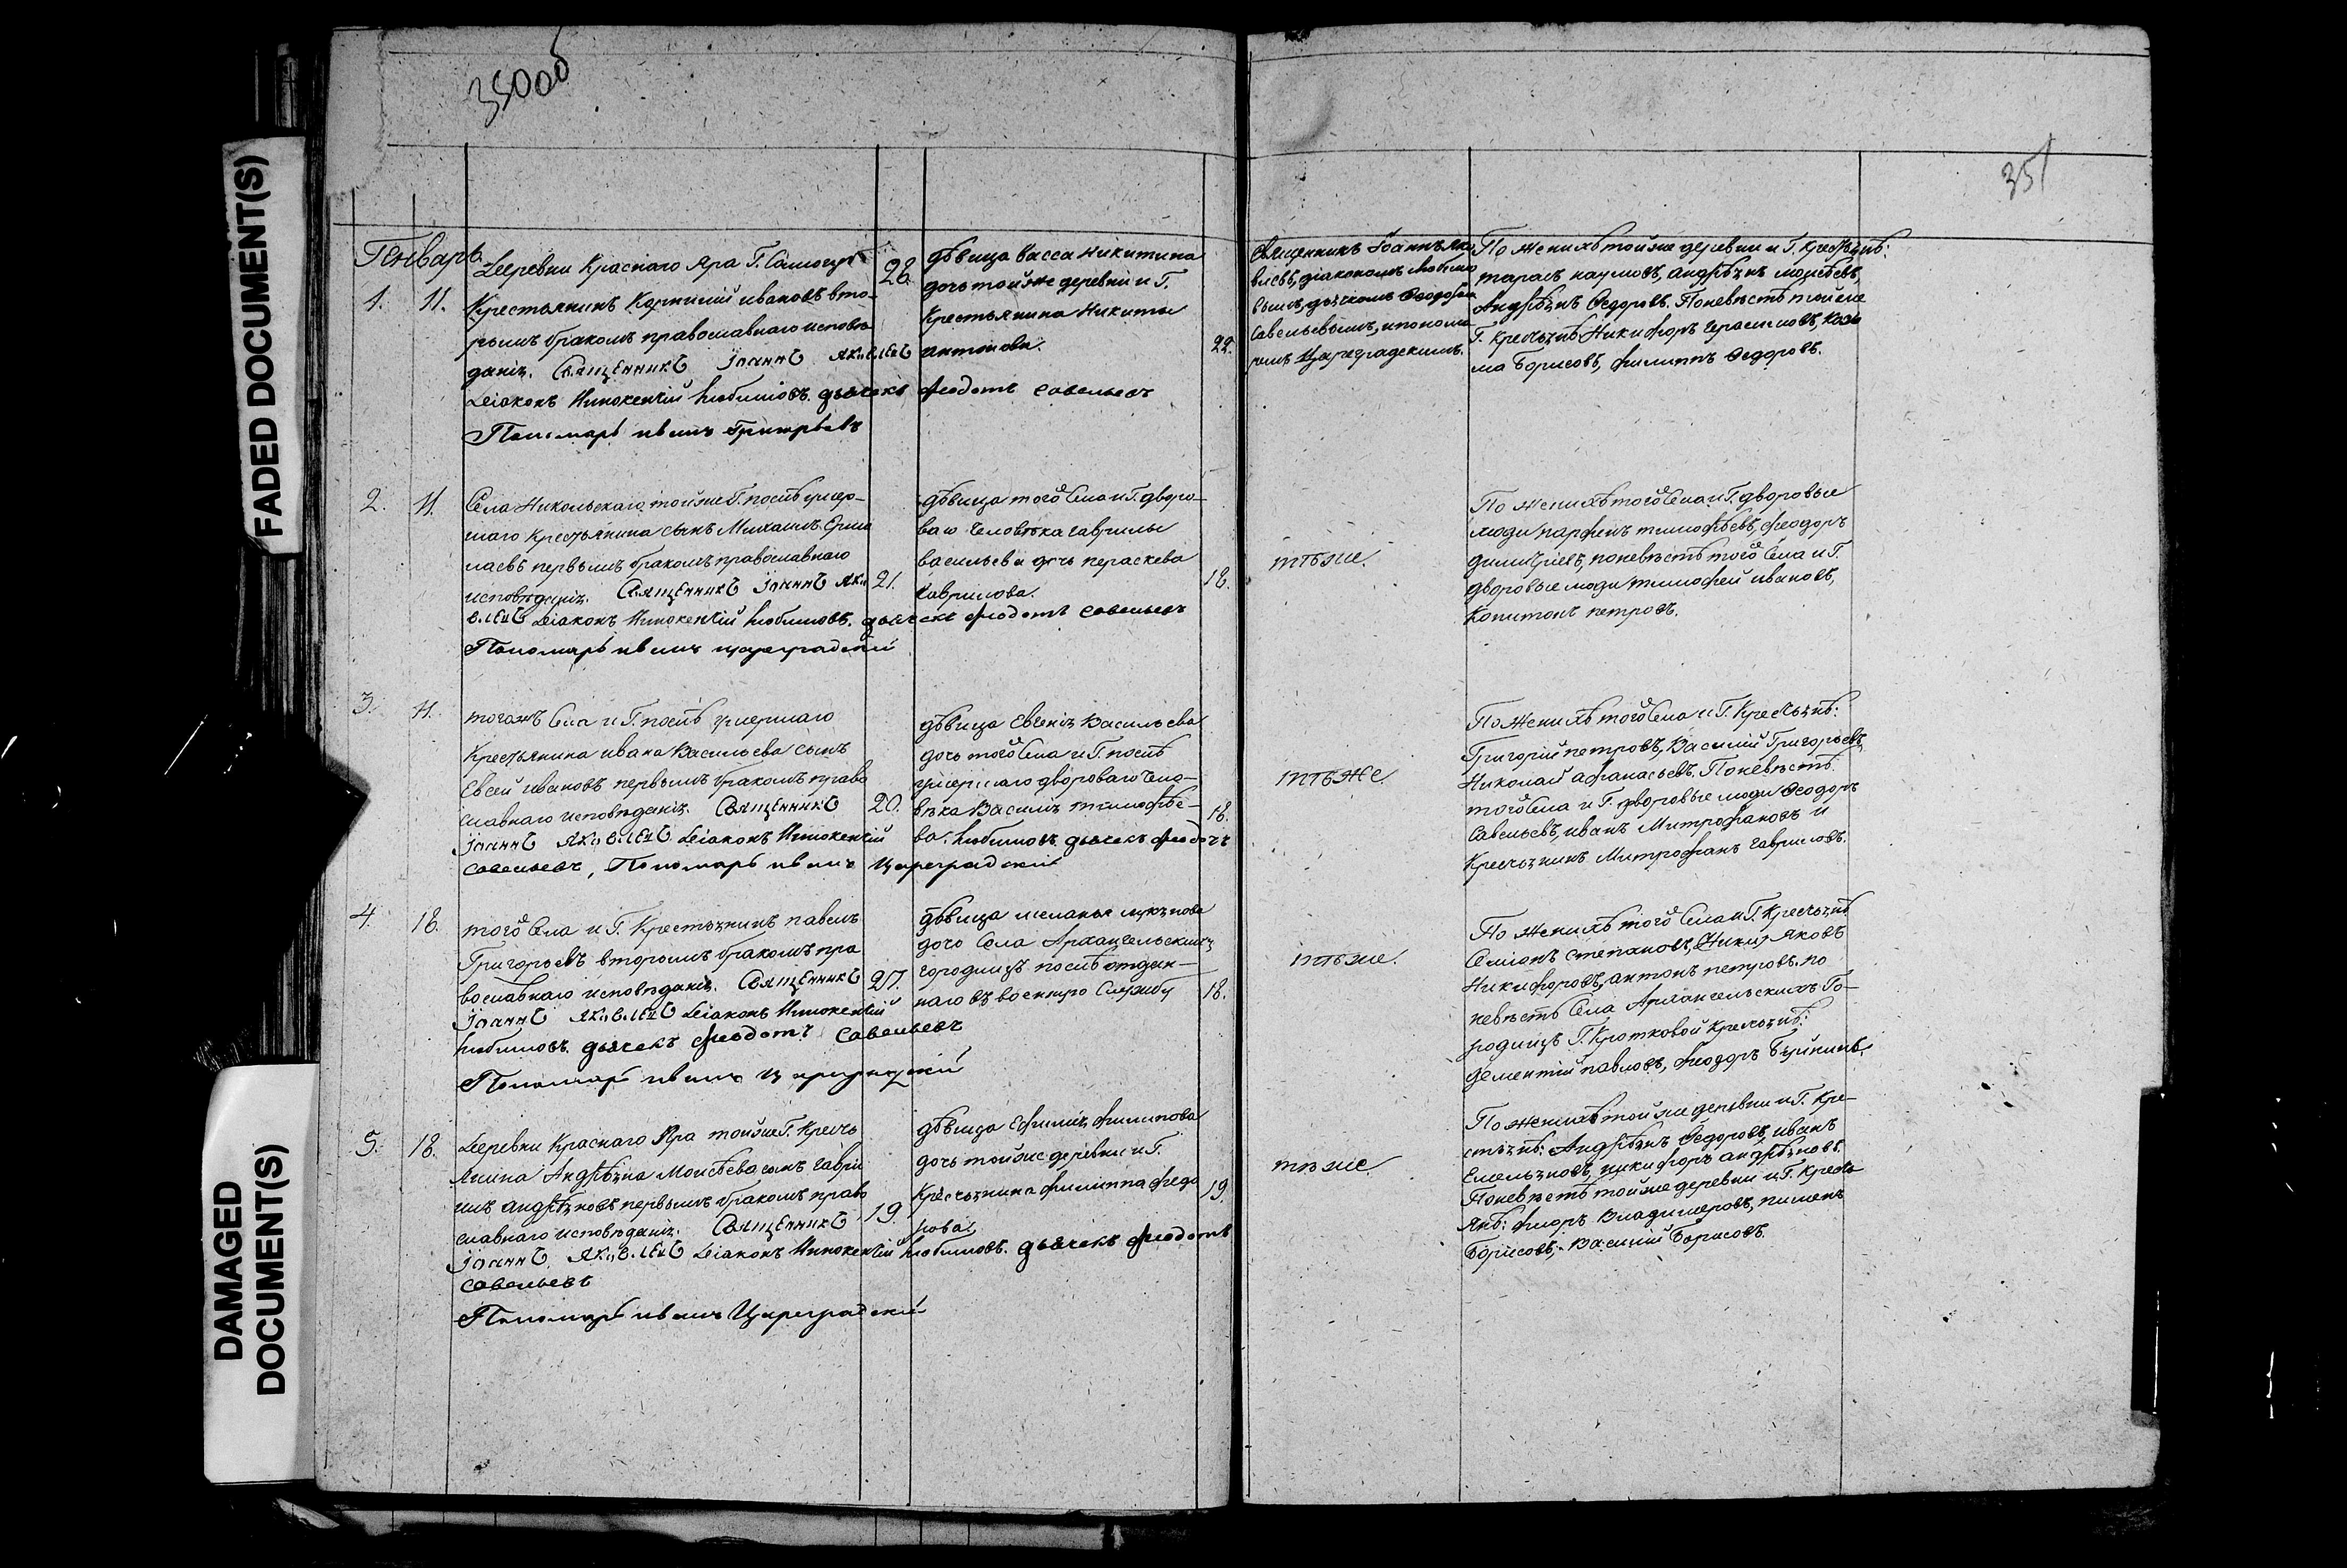 FADED DOCUMENT(S)
DAMAGED
DOCUMENT(S)
350об
351
Генварь
1. 11.
Деревни Краснаго Яра Г.
Крестьянинъ Корнилій ивановъ вто-
рымъ бракомъ православнаго исповѣ
данія. Священникъ Іоаннъ Яковлевъ
Діаконъ Инокентій Любимовъ. дьячекъ Феодотъ Савельевъ
Пономарь иванъ
28.
дѣвица васса Никитина
дочь тойже деревни и Г.
Крестьянина Никиты
антонова.
22.
Священникъ Іоаннъ Яко
влевъ, діакономъ Любимо
вымъ, дьячкомъ Феодотом
Савельевымъ, и понома
ремъ Цареградскимъ.
По женихѣ тойже деревни и Г. Крестьянѣ:
тарасъ наумовъ, андрѣянъ моисѣевъ,
Андрѣянъ Федоровъ. По невѣстѣ той же
Г. Крестьянѣ Никифоръ Герасимовъ, Козь
ма Борисовъ, филиппъ Федоровъ.
2. 11.
Села Никольскаго, тойже Г. послѣ умер-
шаго Крестьянина сынъ Михаилъ Ерми
лаевъ первымъ бракомъ православнаго
исповѣданія. Священникъ Іоаннъ Яко
влевъ Діаконъ Инокентій Любимовъ. дьячекъ Феодотъ Савельевъ
Пономарь иванъ цареградскій
21.
дѣвица того Села и Г. дворо-
ваго человѣка гаврилы
васильева дочь пераскева
гаврилова.
18.
тѣже.
По женихѣ того Села и Г. дворовые
люди парфенъ тимофѣевъ, феодоръ
димитріевъ, по невѣстѣ того Села и Г.
дворовые люди тимофей ивановъ,
Капитонъ петровъ.
3. 11.
тогожъ Села и Г. послѣ умершаго
Крестьянина ивана Васильева сынъ
Евсей ивановъ первымъ бракомъ право
славнаго исповѣданія. Священникъ
Іоаннъ Яковлевъ Діаконъ Инокентій Любимовъ. дьячекъ Феодотъ
Савельевъ, Пономарь иванъ Цареградскій
20.
дѣвица Евгенія Васильева
дочь того Села и Г. послѣ
умершаго двороваго чело-
вѣка Василія тимофѣе-
ва.
18.
тѣже
По женихѣ того Села и Г. Крестьянѣ:
Григорій петровъ, Василій Григорьевъ
Николай афанасьевъ. По невѣстѣ
того Села и Г. дворовые люди Феодоръ
Савельевъ, иванъ Митрофановъ и
Крестьянинъ Митрофанъ гавриловъ.
4. 18.
того Села и Г. Крестьянинъ павелъ
Григорьевъ вторымъ бракомъ пра
вославнаго исповѣданія. Священникъ
Іоаннъ Яковлевъ Діаконъ Инокентій
Любимовъ. дьячекъ Феодотъ Савельевъ
Пономарь иванъ
27.
дѣвица меланья лукьянова
дочь Села Архангельскихъ
городищъ послѣ отдан-
наго въ военную Службу
18.
тѣже.
По женихѣ того Села и Г. Крестьянѣ
Семіонъ степановъ, Яковъ
Никифоровъ, антонъ петровъ. по
невѣстѣ Села Архангельскихъ Го-
родищъ Г. Кротковой Крестьянѣ:
дементій павловъ, Феодоръ
5. 18.
Деревни Краснаго Яра тойже Г. Кресть
янина Андрѣяна Моисѣева сынъ гаври
илъ андрѣяновъ первымъ бракомъ право
славнаго исповѣданія. Священникъ
Іоаннъ Яковлевъ Діаконъ Инокентій Любимовъ. дьячекъ Феодотъ
Савельевъ
Пономарь иванъ Цареградскій
19.
дѣвица Ефимія филипова
дочь тойже деревни и Г.
Крестьянина филиппа федо
рова.
19.
тѣже.
По женихѣ тойже деревни и Г. Кре-
стьянѣ: Андрѣянъ Федоровъ, иванъ
Емельяновъ, никифоръ андрѣяновъ.
По невѣстѣ тойже деревни и Г. Кресть
янѣ: флоръ Владимеровъ, пименъ
Борисовъ, Василій Борисовъ.